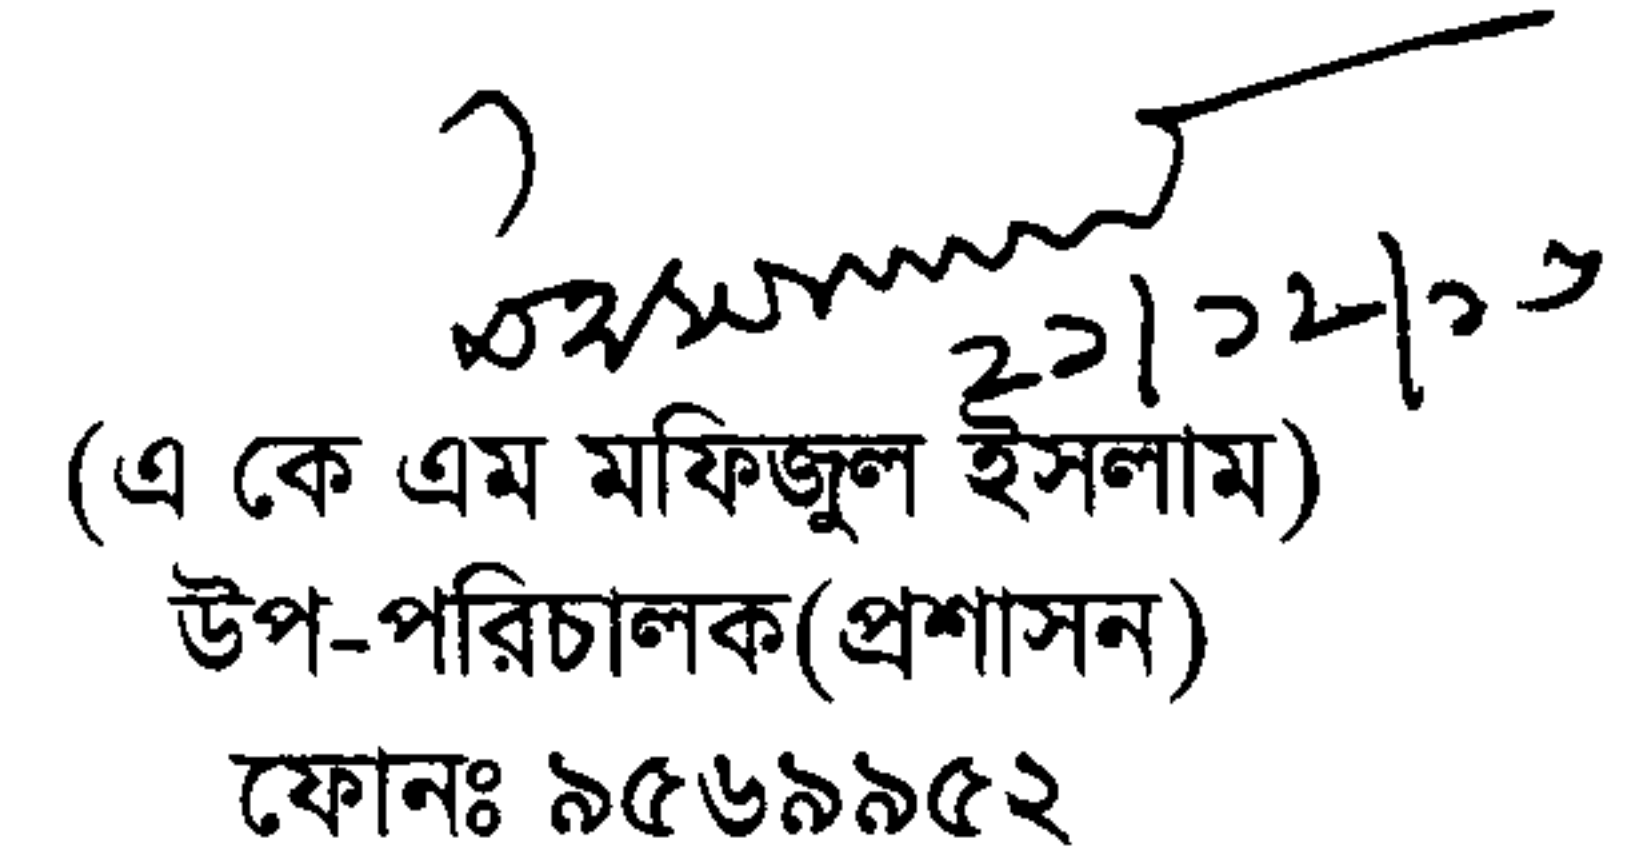 ২১/১২/১৩
(এ কে এম মফিজুল ইসলাম)
উপ-পরিচালক(প্রশাসন)
ফোনঃ ৯৫৬৯৯৫২